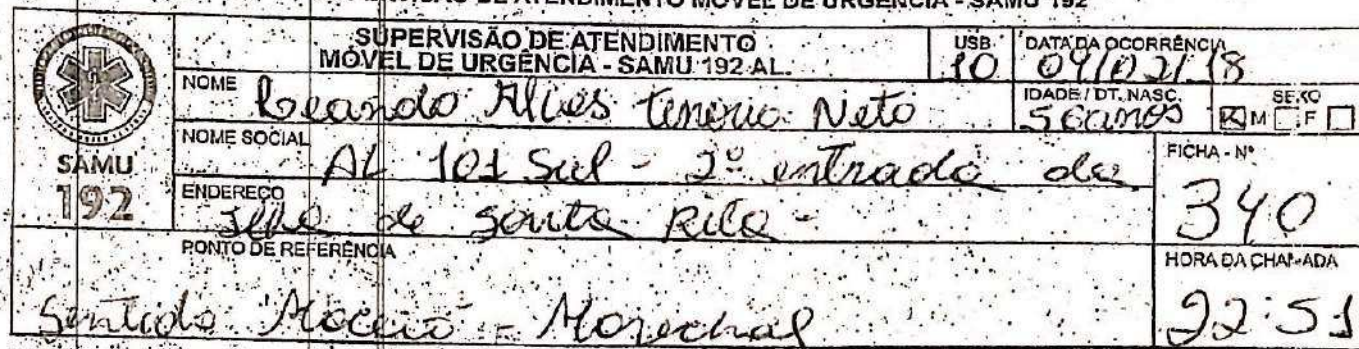 SUPERVISÃO DE ATENDIMENTO MÓVEL DE URGÊNCIA - SAMU 192
SUPERVISÃO DE ATENDIMENTO
MÓVEL DE URGÊNCIA - SAMU 192 AL.
USB
10
DATA DA OCORRÊNCIA
09/02/18
NOME
Leando Alves Tenorio Neto
IDADE / DT. NASC.
56 anos
SEXO
M F
NOME SOCIAL
AL 101 Sul - 2º entrada da
ENDEREÇO
Ilha de Santa Rita -
FICHA - Nº
340
PONTO DE REFERÊNCIA
Sentido Maceió - Marechal
HORA DA CHAMADA
22:51
SAMU
192